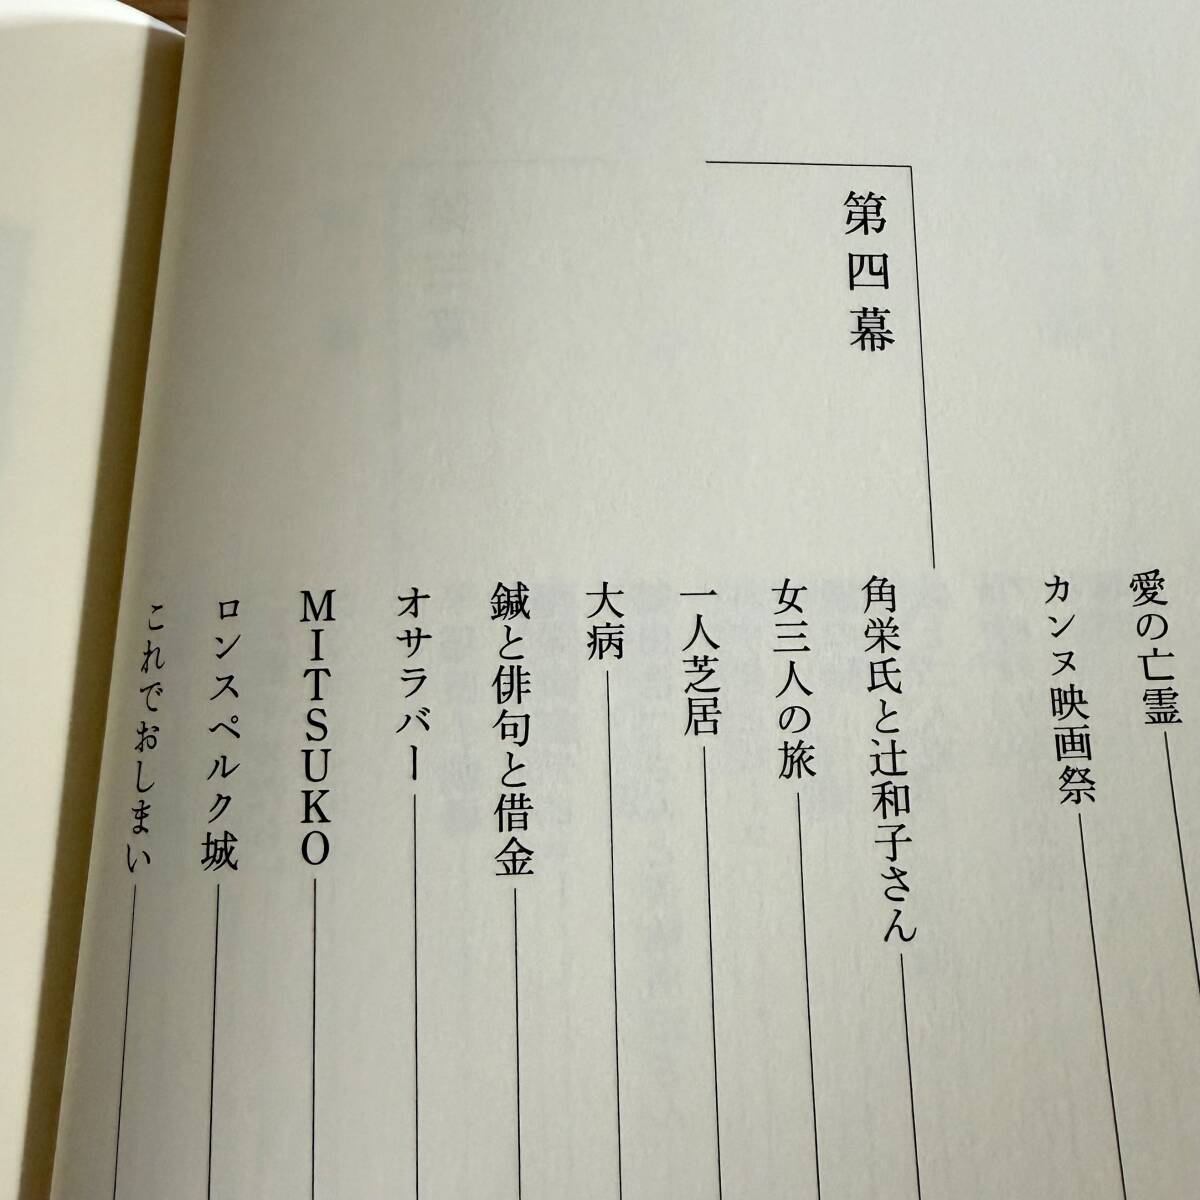 愛の亡霊
カンヌ映画祭
第四幕
角栄氏と辻和子さん
女三人の旅
一人芝居
大病
鍼と俳句と借金
オサラバー
MITSUKO
ロンスペルク城
これでおしまい